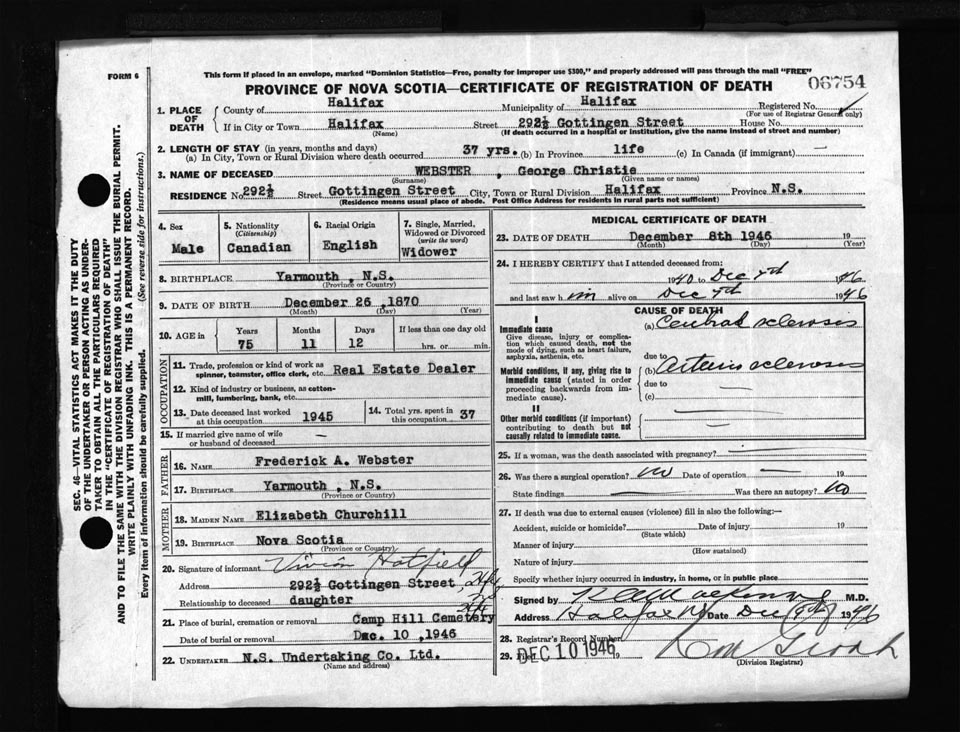 FORM 6
This form if placed in an envelope, marked "Dominion Statistics—Free, penalty for improper use $300," and properly addressed will pass through the mail "FREE"
PROVINCE OF NOVA SCOTIA—CERTIFICATE OF REGISTRATION OF DEATH
06754
1. PLACE OF DEATH
County of Halifax Municipality of Halifax Registered No.
(For use of Registrar General only)
If in City or Town Halifax Street 292½ Gottingen Street House No.
(Name) (If death occurred in a hospital or institution, give the name instead of street and number)
2. LENGTH OF STAY (in years, months and days)
(a) In City, Town or Rural Division where death occurred 37 yrs. (b) In Province life (c) In Canada (if immigrant) —
3. NAME OF DECEASED WEBSTER , George Christie
(Surname) (Given name or names)
RESIDENCE No. 292½ Street Gottingen Street City, Town or Rural Division Halifax Province N.S.
(Residence means usual place of abode. Post Office Address for residents in rural parts not sufficient)
4. Sex
Male
5. Nationality
(Citizenship)
Canadian
6. Racial Origin
English
7. Single, Married, Widowed or Divorced
(write the word)
Widower
8. BIRTHPLACE Yarmouth , N.S.
(Province or Country)
9. DATE OF BIRTH December 26 ,1870
(Month) (Day) (Year)
10. AGE in
Years Months Days If less than one day old
75 11 12 hrs. or min.
OCCUPATION
11. Trade, profession or kind of work as
spinner, teamster, office clerk, etc. Real Estate Dealer
12. Kind of industry or business, as cotton-
mill, lumbering, bank, etc.
13. Date deceased last worked
at this occupation 1945
14. Total yrs. spent in
this occupation 37
15. If married give name of wife
or husband of deceased —
FATHER
16. NAME Frederick A. Webster
17. BIRTHPLACE Yarmouth , N.S.
(Province or Country)
MOTHER
18. MAIDEN NAME Elizabeth Churchill
19. BIRTHPLACE Nova Scotia
(Province or Country)
20. Signature of informant Vivian Hatfield
Address 292½ Gottingen Street
Relationship to deceased daughter
21. Place of burial, cremation or removal Camp Hill Cemetery
Date of burial or removal Dec. 10 ,1946
22. UNDERTAKER N.S. Undertaking Co. Ltd.
(Name and address)
MEDICAL CERTIFICATE OF DEATH
23. DATE OF DEATH December 8th 1946 19
(Month) (Day) (Year)
24. I HEREBY CERTIFY that I attended deceased from:
1940 to Dec 7th 1946
and last saw him alive on Dec 7th 1946
CAUSE OF DEATH
I
Immediate cause
Give disease, injury or complication which caused death, not the mode of dying, such as heart failure, asphyxia, asthenia, etc.
(a) sclerosis
due to
Morbid conditions, if any, giving rise to immediate cause (stated in order proceeding backwards from immediate cause).
(b) Arterio sclerosis
due to
(c)
II
Other morbid conditions (if important) contributing to death but not causally related to immediate cause.
25. If a woman, was the death associated with pregnancy?
26. Was there a surgical operation? no Date of operation — 19
State findings — Was there an autopsy? no
27. If death was due to external causes (violence) fill in also the following:—
Accident, suicide or homicide? Date of injury 19
(State which)
Manner of injury
(How sustained)
Nature of injury
Specify whether injury occurred in industry, in home, or in public place
Signed by M.D.
Address Halifax NS Date Dec 1946
28. Registrar's Record Number
29. Filed DEC 10 1946 19
(Division Registrar)
SEC. 46—VITAL STATISTICS ACT MAKES IT THE DUTY
OF THE UNDERTAKER OR PERSON ACTING AS UNDER-
TAKER TO OBTAIN ALL THE PARTICULARS REQUIRED
IN THE "CERTIFICATE OF REGISTRATION OF DEATH"
AND TO FILE THE SAME WITH THE DIVISION REGISTRAR WHO SHALL ISSUE THE BURIAL PERMIT.
WRITE PLAINLY WITH UNFADING INK. THIS IS A PERMANENT RECORD.
Every item of information should be carefully supplied. (See reverse side for instructions.)